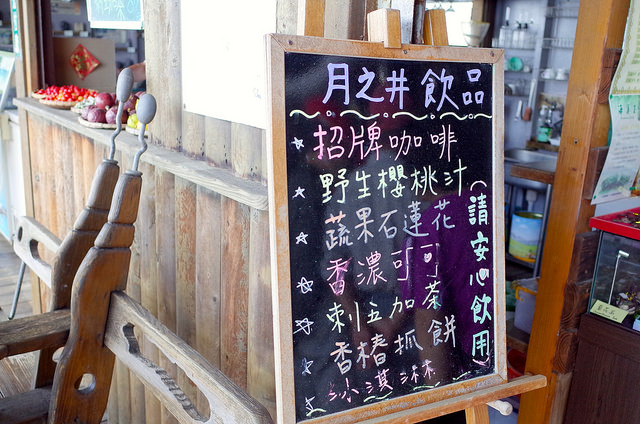 月之井飲品
招牌咖啡
野生櫻桃汁
蔬果石蓮花
香濃可可
刺五加茶
香椿抓餅
冰淇淋
(請安心飲用)